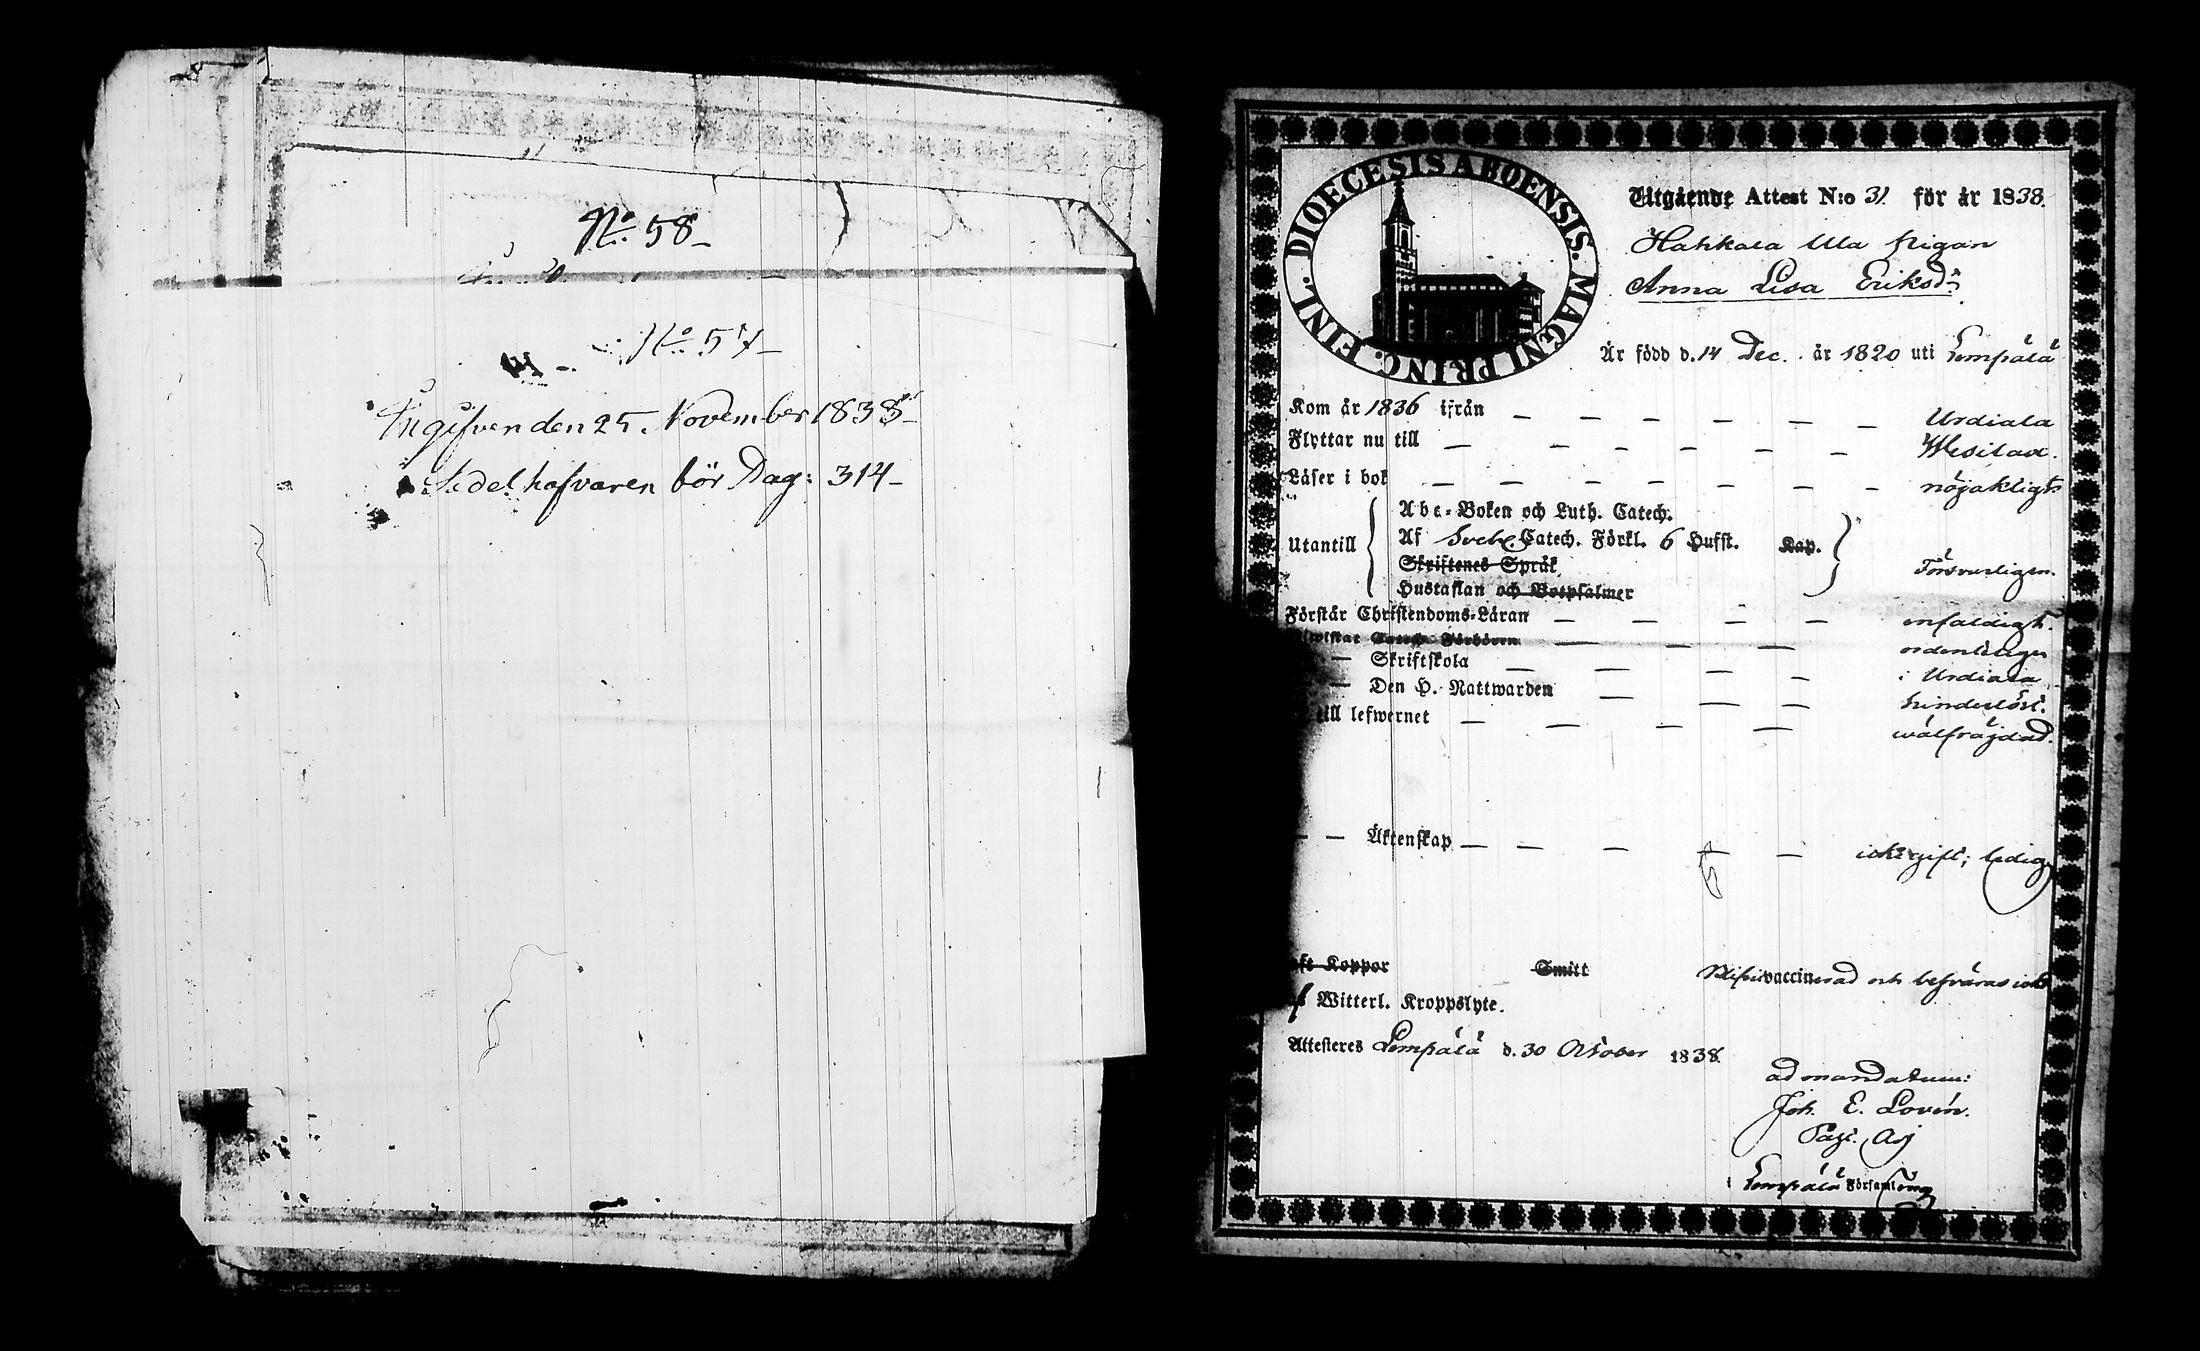 No 58
No 57
Ingifven den 25. November 1838
Sedelhafvaren bör Dag: 314
DIOECESIS ABOENSIS. MAGNI PRINC. FINL.
Utgående Attest N:o 31 för år 1838.
Anna Lisa Eriksd:r
Är född d. 14 Dec. år 1820 uti Lempälä
Kom år 1836 ifrån — — — — — — Urdiala
Flyttar nu till — — — — — — Wesilax.
Läser i bok — — — — — — nöjaktigt
Utantill
Abc-Boken och Luth. Catech.
Af Sveb. Catech. Förkl. 6 Hufst. Kap.
Skriftenes Språk
Hustaflan och Botpsalmer
Försvarligen.
Förstår Christendoms-Läran — — — enfaldigt.
Catech. Förhören — — — ordentligen
— Skriftskola — — — — i Urdiala
— Den H. Nattwarden — — — hinderlöst.
till lefwernet — — — — — wälfräjdad.
— — Äktenskap — — — — — icke gift; ledig
Koppor Smitt vaccinerad och besväras icke
af Witterl. Kroppslyte.
Attesteres Lempälä d. 30 October 1838.
ad mandatum:
Joh. E. Lovén.
i Lempälä Församling